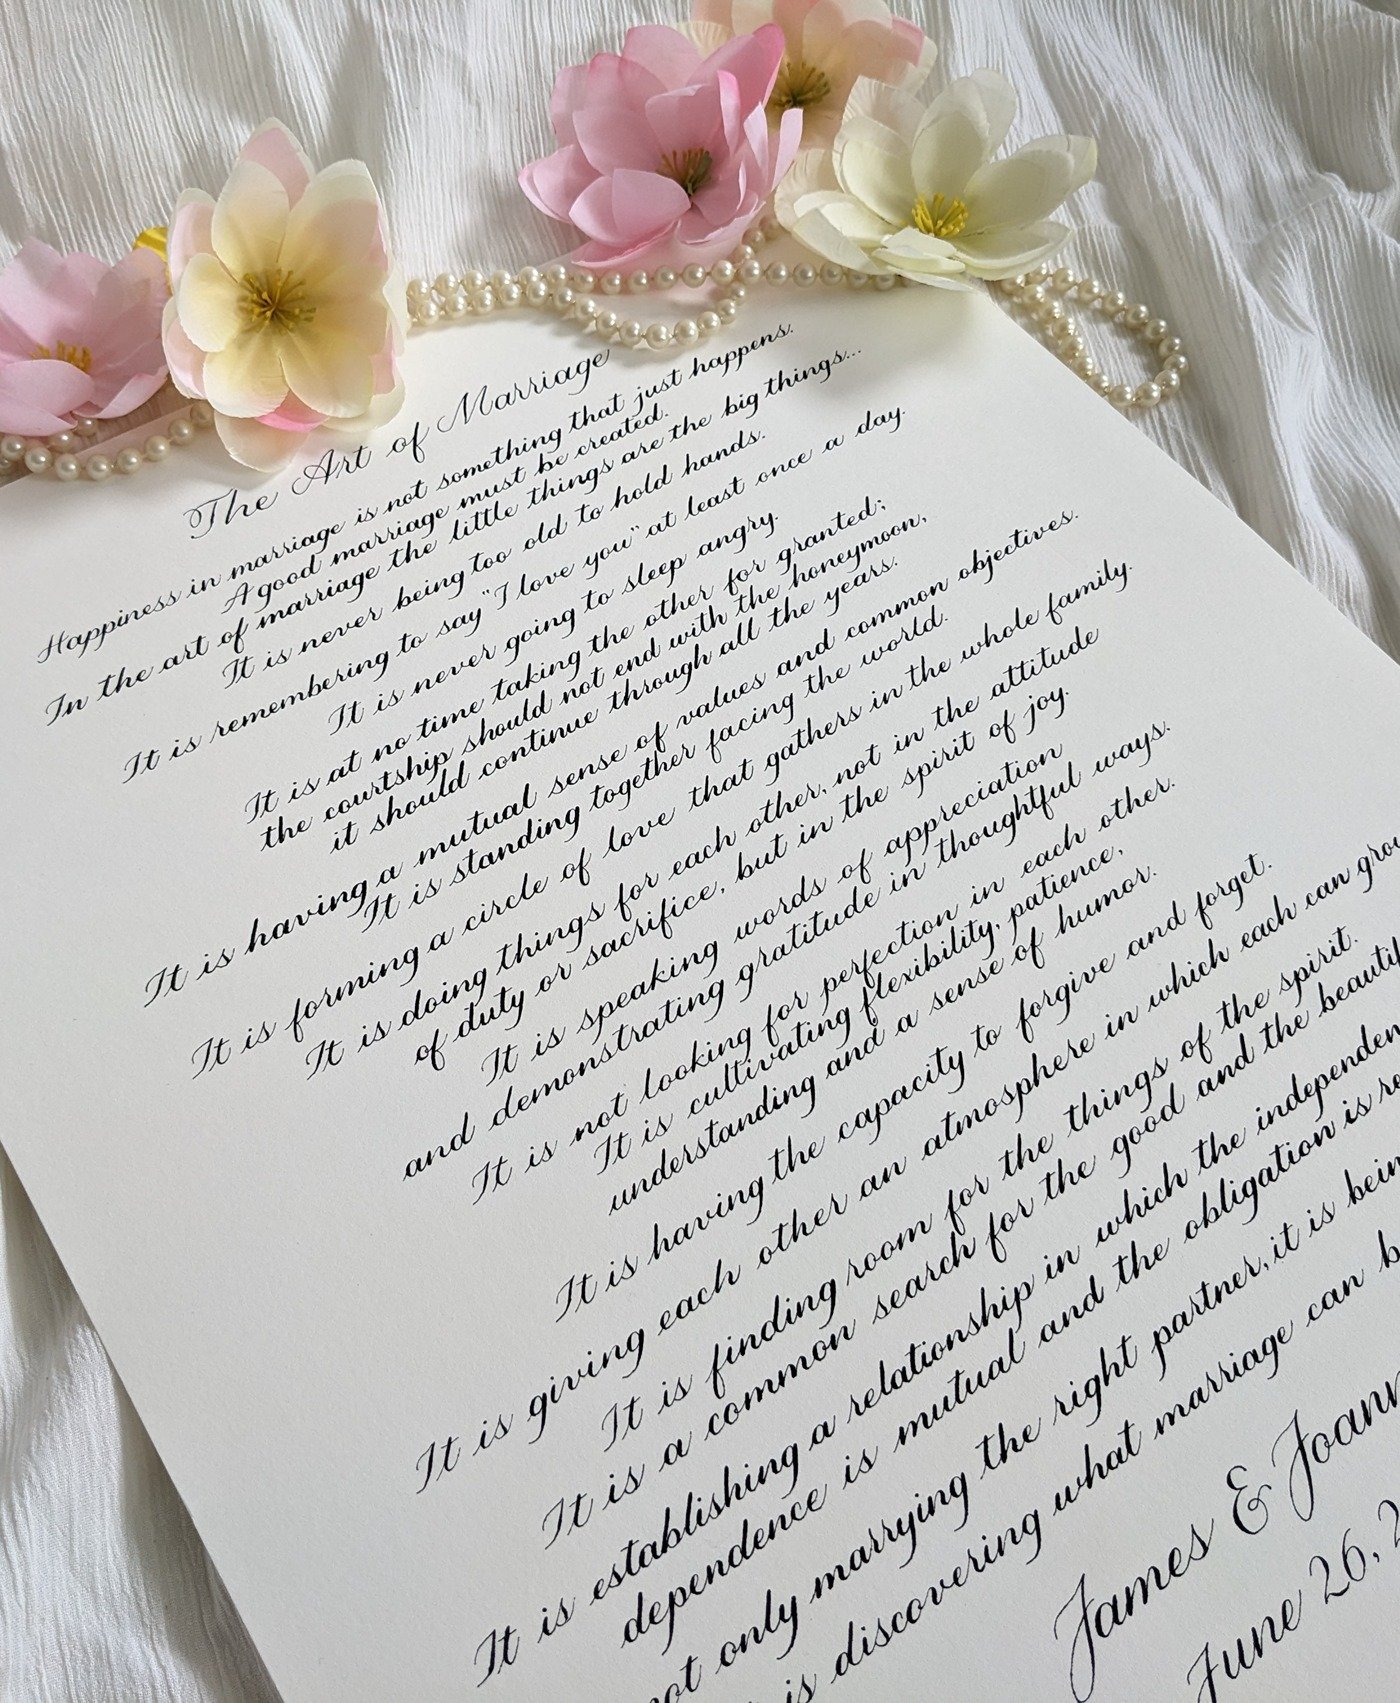 The Art of Marriage
Happiness in marriage is not something that just happens.
A good marriage must be created.
In the art of marriage the little things are the big things...
It is never being too old to hold hands.
It is remembering to say "I love you" at least once a day.
It is never going to sleep angry.
It is at no time taking the other for granted;
the courtship should not end with the honeymoon,
it should continue through all the years.
It is having a mutual sense of values and common objectives.
It is standing together facing the world.
It is forming a circle of love that gathers in the whole family.
It is doing things for each other, not in the attitude
of duty or sacrifice, but in the spirit of joy.
It is speaking words of appreciation
and demonstrating gratitude in thoughtful ways.
It is not looking for perfection in each other.
It is cultivating flexibility, patience,
understanding and a sense of humor.
It is having the capacity to forgive and forget.
It is giving each other an atmosphere in which each can
It is finding room for the things of the spirit.
It is a common search for the good and the
It is establishing a relationship in which the
dependence is mutual and the obligation is
not only marrying the right partner, it is
is discovering what marriage can
James &
June 26,